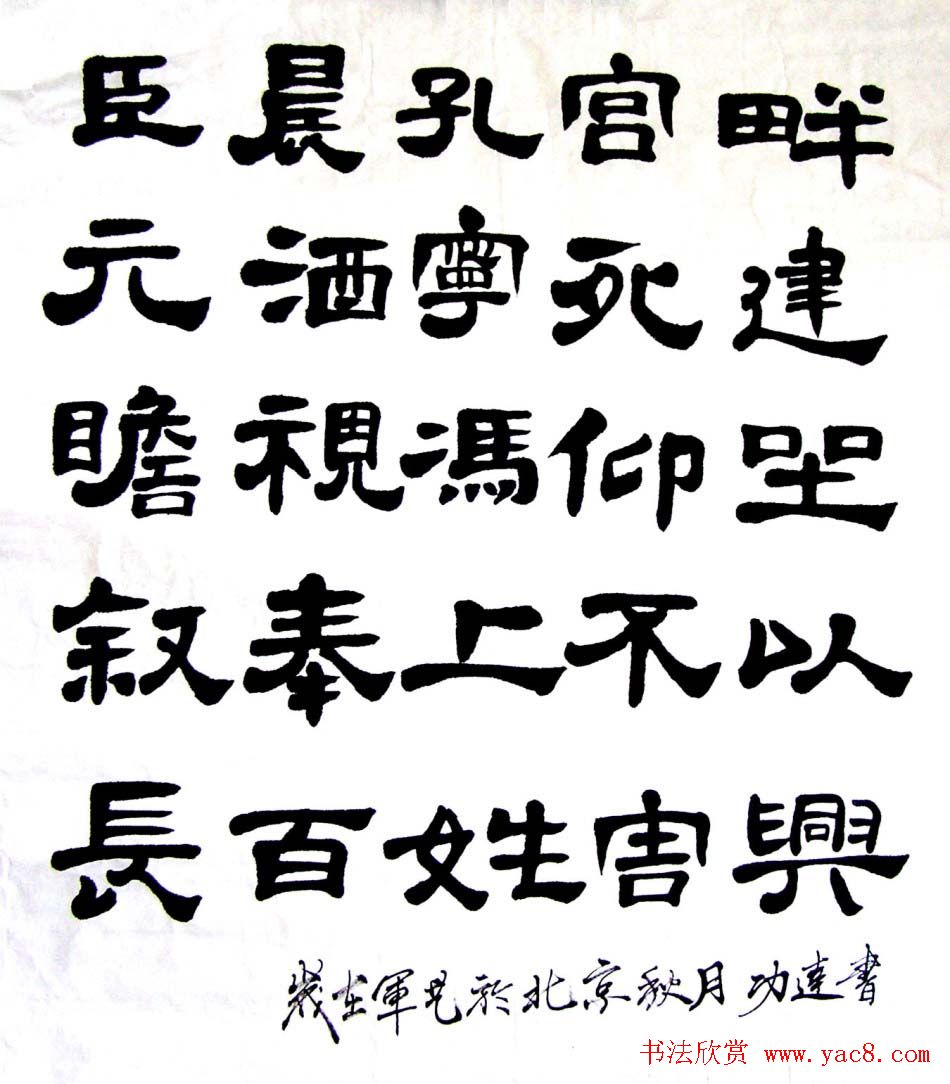 臣晨孔宫畔
元洒寧死建
瞻視馮仰坐
叙奉上不以
長百姓害興
歲在於北京秋月功達書
书法欣赏 www.yac8.com